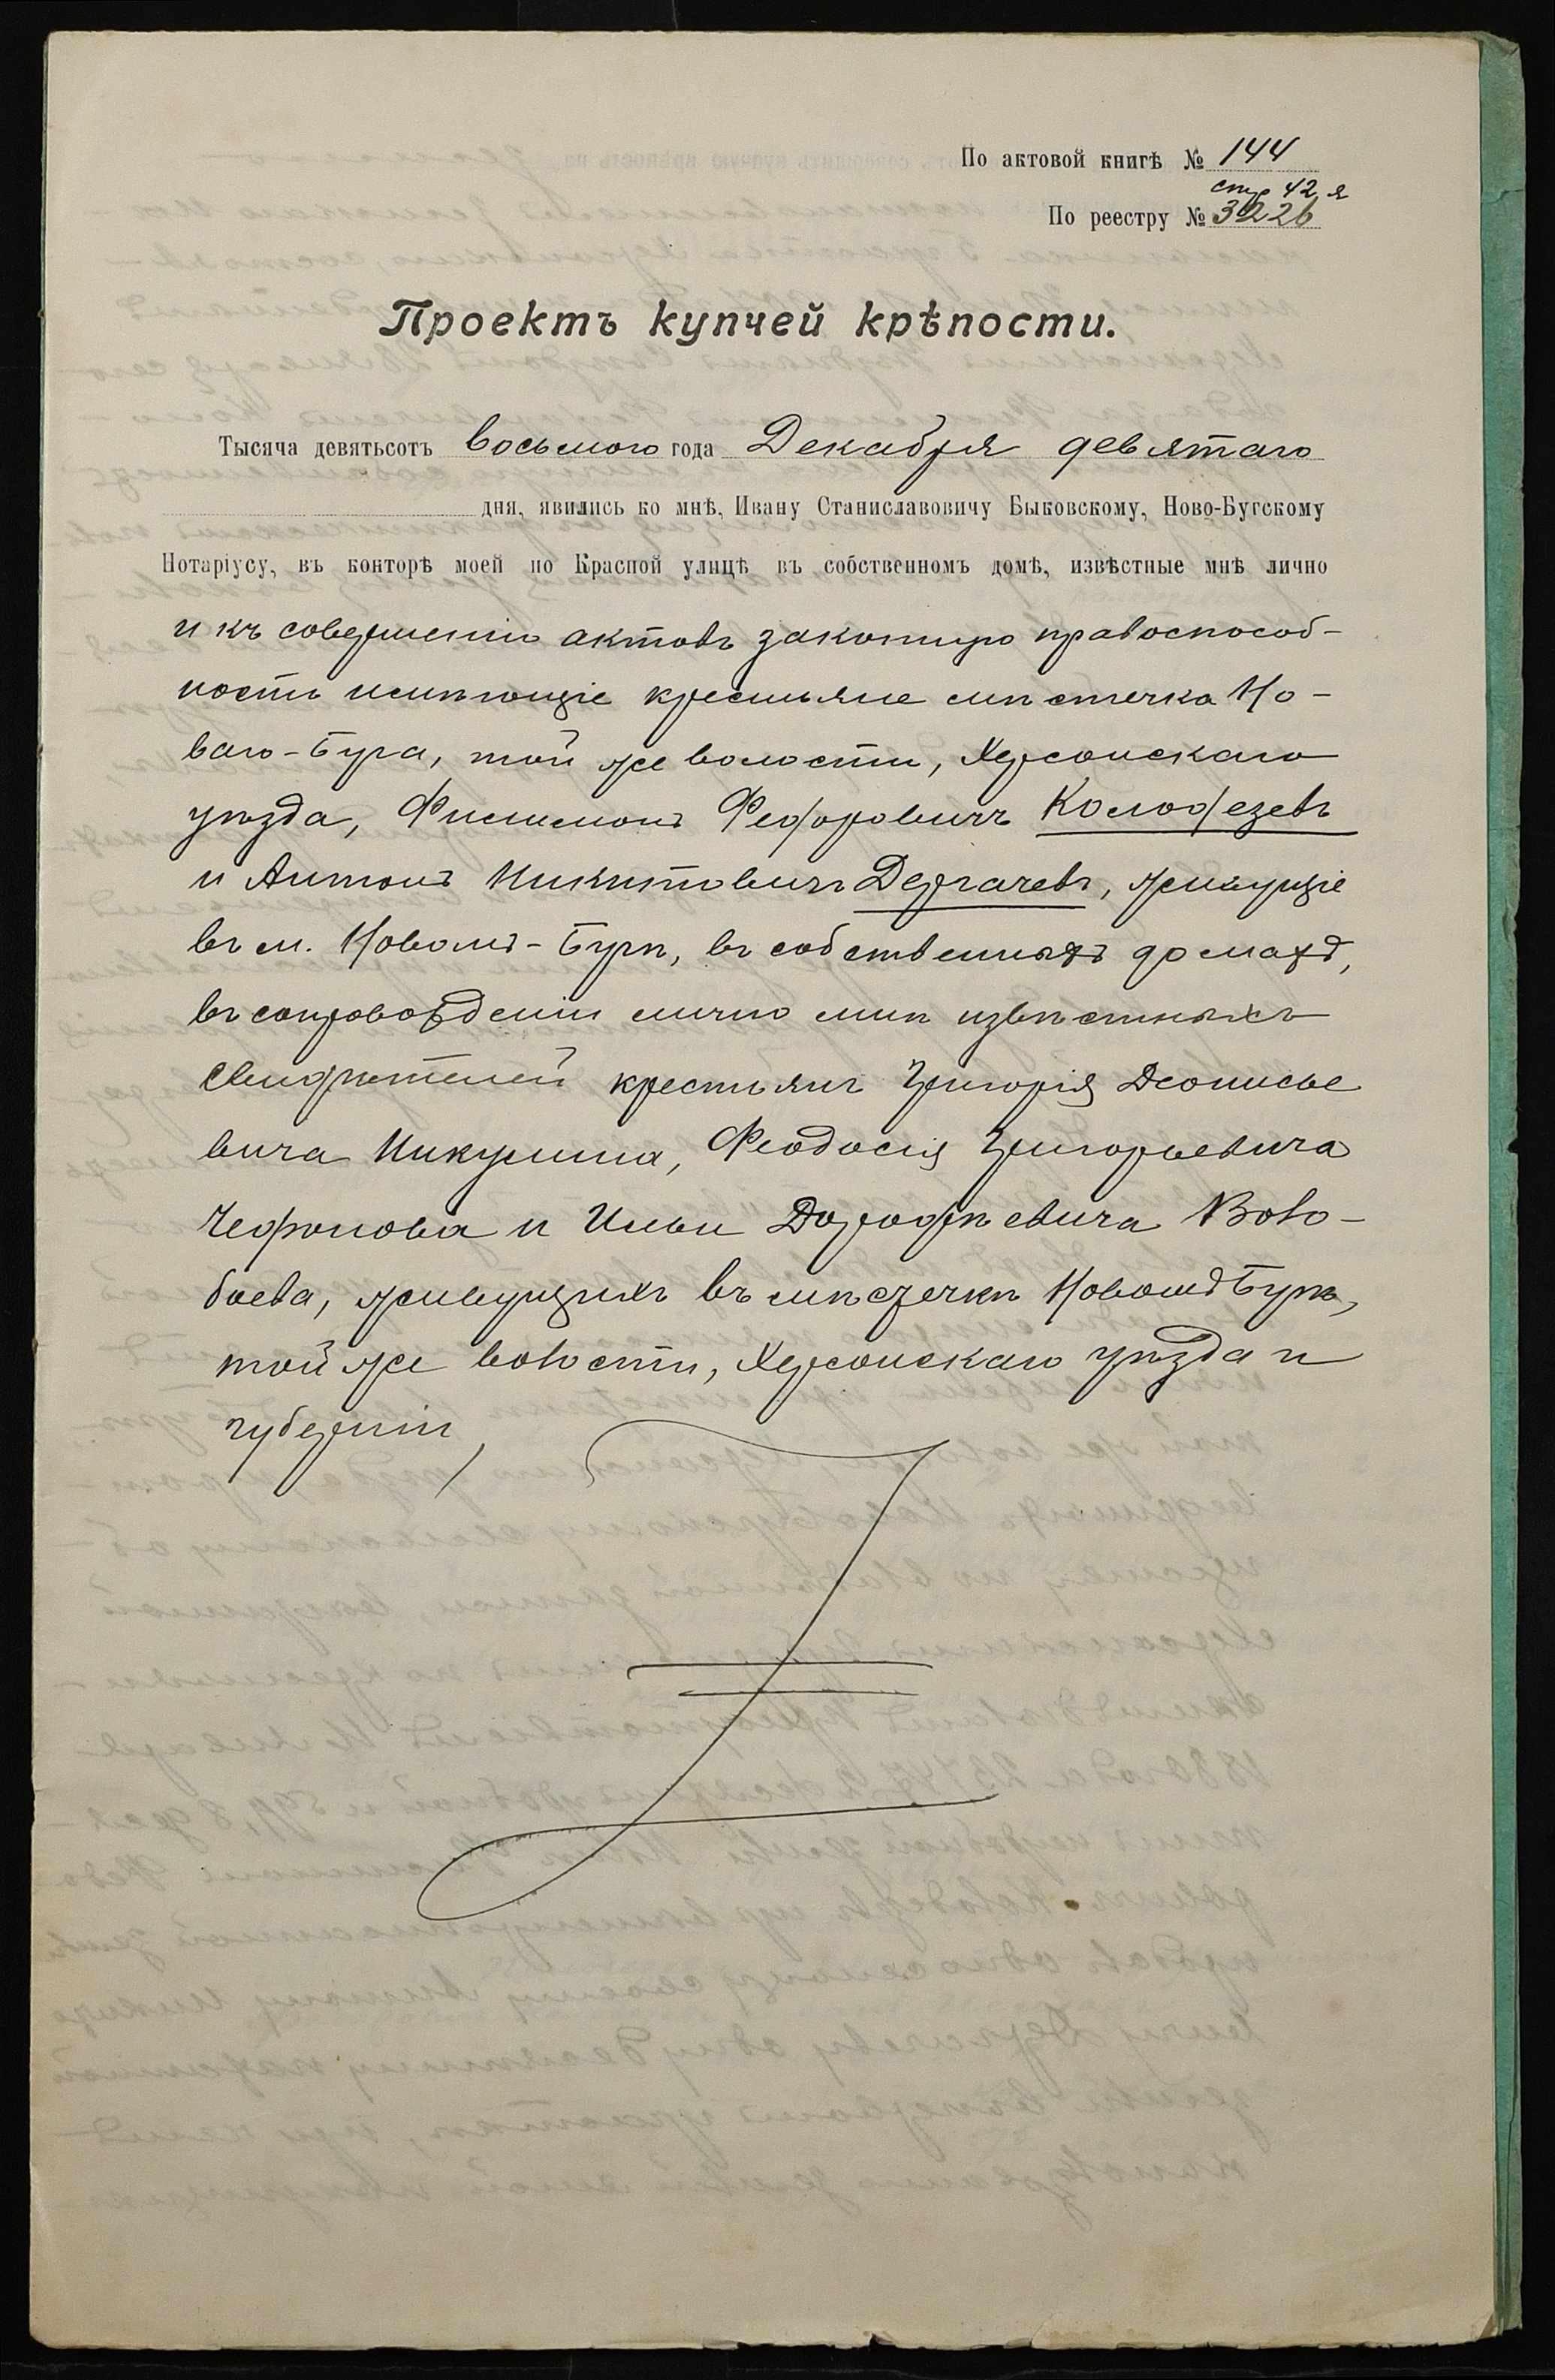 По актовой книгѣ № 144
стр 42 я
По реестру № 3226
Проектъ купчей крѣпости.
Тысяча девятьсотъ восьмого года Декабря девятаго
дня, явились ко мнѣ, Ивану Станиславовичу Быковскому, Ново-Бугскому
Нотаріусу, въ конторѣ моей по Красной улицѣ въ собственномъ домѣ, извѣстные мнѣ лично
и къ совершенію актовъ законную правоспособ-
ность имѣющіе крестьяне мѣстечка Но-
ваго-Буга, той же волости, Херсонскаго
уѣзда, Филимонъ Федоровичъ Колодезевъ
и Антонъ Никитовичъ Дергачевъ, живущіе
въ м. Новомъ-Бугѣ, въ собственныхъ домахъ,
въ сопровожденіи лично мнѣ извѣстныхъ
свидѣтелей крестьянъ Григорія Деонисье
вича Никулина, Феодосія Григорьевича
и Ильи Дорофѣевича Воло-
боева, живущихъ въ мѣстечкѣ Новомъ Бугѣ,
той же волости, Херсонскаго уѣзда и
губерніи,